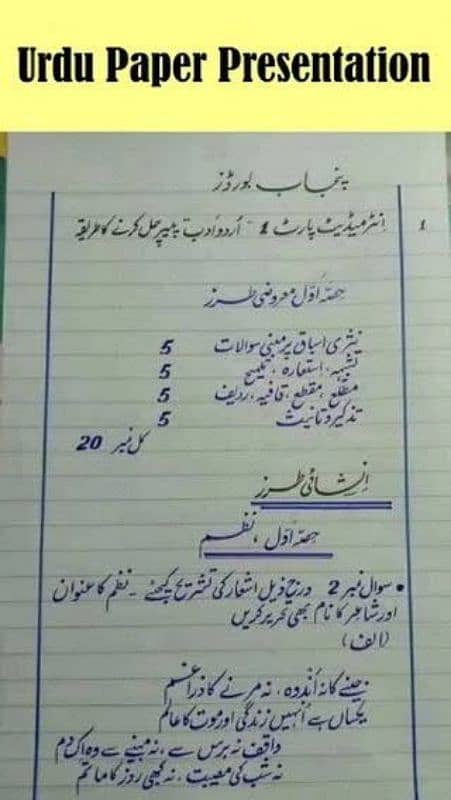 Urdu Paper Presentation
پنجاب بورڈز
1 انٹرمیڈیٹ پارٹ 1 - اُردو ادب پیپر حل کرنے کا طریقہ
حصّہ اَوّل معروضی طرز
نثری اسباق پر مبنی سوالات 5
تشبیہ، استعارہ، تلمیح 5
مطلع، مقطع، قافیہ، ردیف 5
تذکیر و تانیث 5
کل نمبر 20
اِنشائی طرز
حصّہ اَوّل، نظم
• سوال نمبر 2 درج ذیل اشعار کی تشریح کیجئے - نظم کا عنوان
اور شاعر کا نام بھی تحریر کریں
(الف)
جینے کا نہ اَندوہ، نہ مرنے کا ذرا غم
یکساں ہے اُنہیں زندگی اور موت کا عالم
واقف نہ برس سے، نہ مہینے سے وہ اِک دم
نہ شب کی مصیبت، نہ کبھی روز کا ماتم